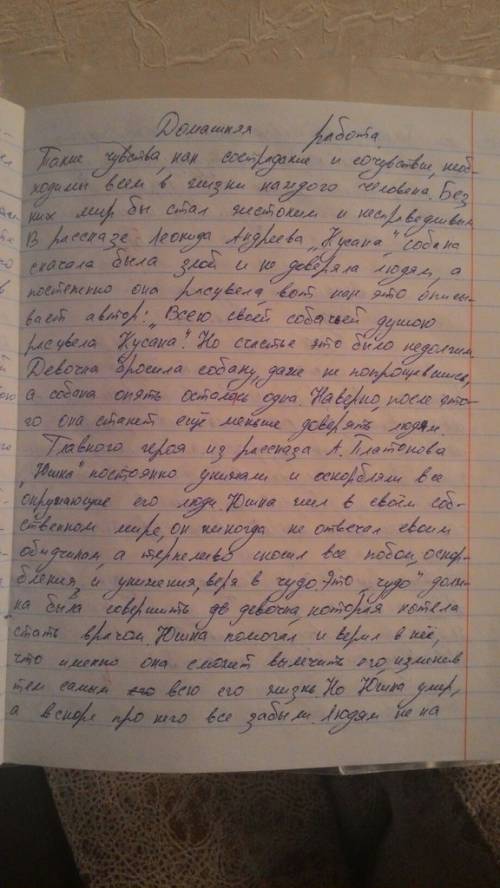 Домашняя работа
Такие чувства, как сострадание и сочувствие, необ-
ходимы всем в жизни каждого человека. Без
них мир бы стал жестоким и несправедливым
В рассказе Леонида Андреева „Кусака" собака
сначала была злой и не доверяла людям, а
постепенно она расцвела, вот как это описы-
вает автор: „Всею своей собачьей душою
расцвела Кусака". Но счастье это было недолгим.
Девочка бросила собаку, даже не попрощавшись,
а собака опять осталась одна. Наверно, после это-
го она станет ещё меньше доверять людям.
Главного героя из рассказа А. Платонова
„Юшка" постоянно унижали и оскорбляли все
окружающие его люди. Юшка жил в своём соб-
ственном мире, он никогда не отвечал своим
обидчикам, а терпеливо сносил все побои, оскор-
бления, и унижения, веря в чудо. Это „чудо" долж-
на была совершить девочка, которая хотела
стать врачом. Юшка помогал и верил в неё,
что именно она сможет вылечить его изменив
тем самым всю его жизнь. Но Юшка умер,
а вскоре про него все забыли. Людям не на